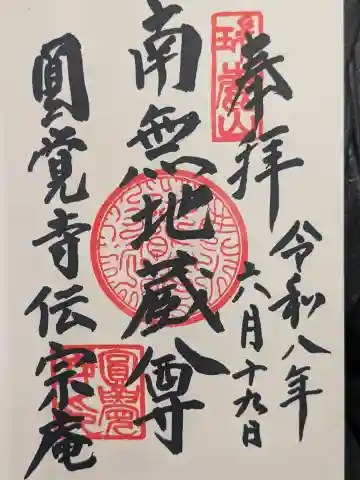 奉拝
令和八年
六月十九日
南無地蔵尊
圓覚寺伝宗庵